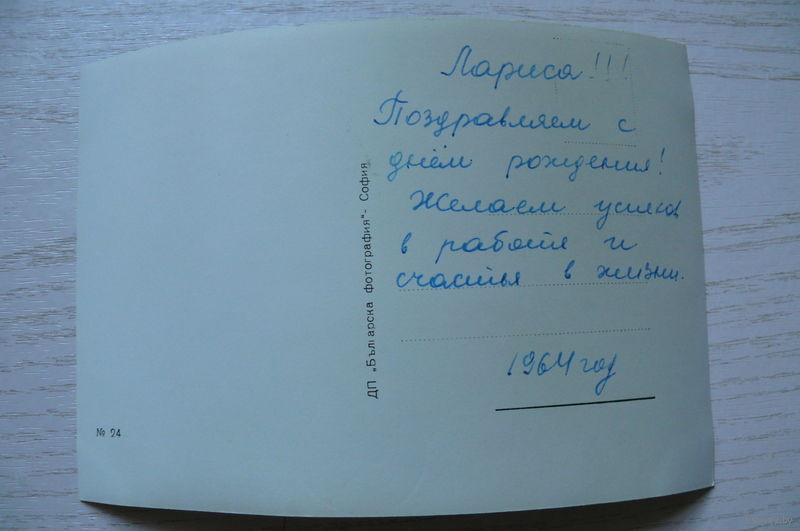 Лариса!!!
Поздравляем с
днём рождения!
Желаем успехов
в работе и
счастья в жизни.
1964 год
ДП „Българска фотография"- София
№ 24